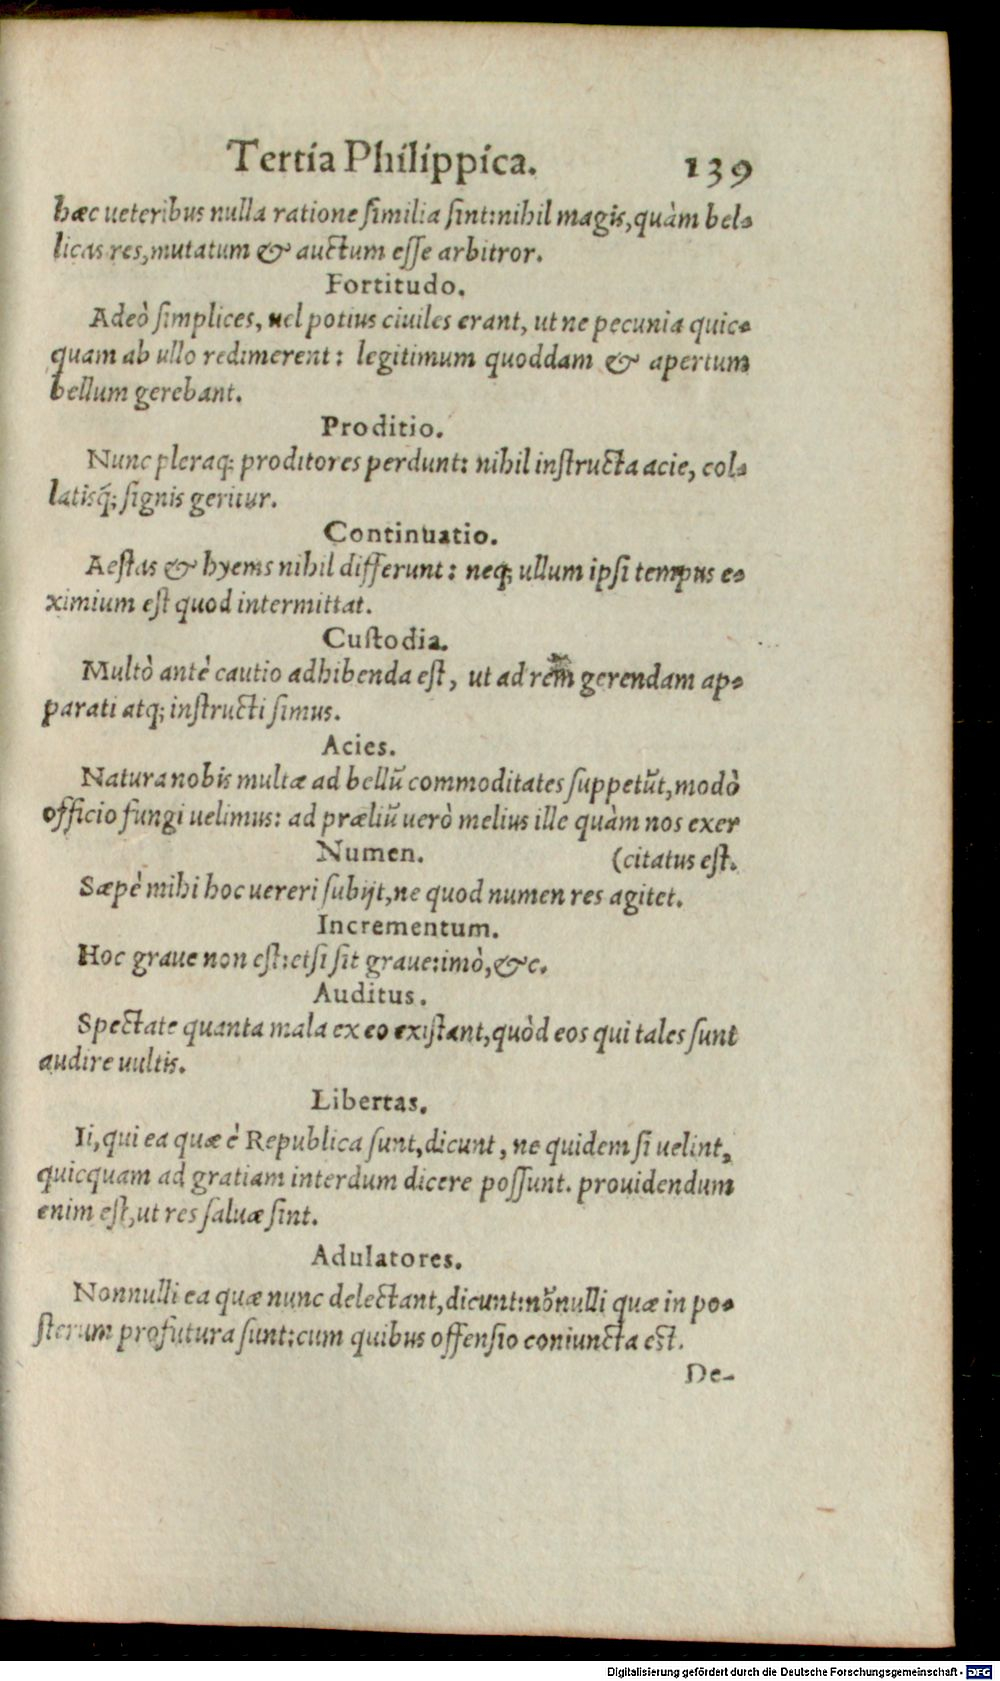 Tertia Philippica. 139
hæc ueteribus nulla ratione ſimilia ſint:nihil magis,quàm bel-
licas res,mutatum & auctum eſſe arbitror.
Fortitudo.
Adeò ſimplices, uel potius ciuiles erant, ut ne pecunia quic-
quam ab ullo redimerent: legitimum quoddam & apertum
bellum gerebant.
Proditio.
Nunc pleraq; proditores perdunt: nihil inſtructa acie, col-
latisq́; ſignis geritur.
Continuatio.
Aeſtas & hyems nihil differunt: neq; ullum ipſi tempus e-
ximium eſt quod intermittat.
Cuſtodia.
Multò antè cautio adhibenda eſt, ut ad rem gerendam ap-
parati atq; inſtructi ſimus.
Acies.
Natura nobis multæ ad bellũ commoditates ſuppetũt,modò
officio fungi uelimus: ad præliũ uerò melius ille quàm nos exer
Numen. (citatus eſt.
Sæpè mihi hoc uereri ſubijt,ne quod numen res agitet.
Incrementum.
Hoc graue non eſt:etſi ſit graue:imò,&c.
Auditus.
Spectate quanta mala ex eo exiſtant,quòd eos qui tales ſunt
audire uultis.
Libertas.
Ii,qui ea quæ è Republica ſunt,dicunt, ne quidem ſi uelint,
quicquam ad gratiam interdum dicere poſſunt. prouidendum
enim eſt,ut res ſaluæ ſint.
Adulatores.
Nonnulli ea quæ nunc delectant,dicunt:nõnulli quæ in po-
ſterum profutura ſunt:cum quibus offenſio coniuncta eſt.
De-
Digitalisierung gefördert durch die Deutsche Forschungsgemeinschaft - DFG